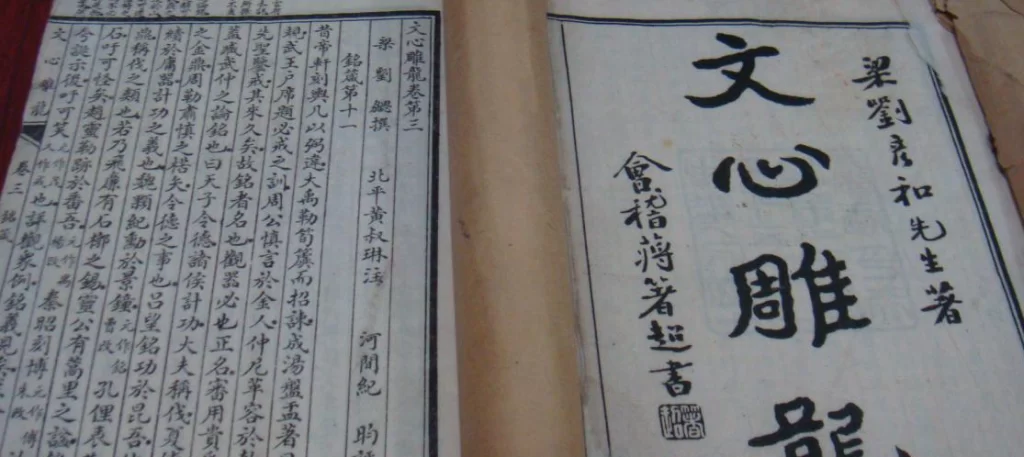 梁劉彥和先生著
文心雕龍
會稽蔣箸超書
箸超
文心雕龍卷第三
梁 劉勰撰 北平黃叔琳注 河間紀 昀
銘箴第十一
昔帝軒刻輿几以弼違大禹勒筍簴而招諫成湯盤盂著
規武王戶席題必戒之訓周公慎言於金人仲尼革容於
先聖鑒戒其來久矣故銘者名也觀器必也正名審用貴
蓋臧武仲之論銘也曰天子令德諸侯計功大夫稱伐夏
之金鼎周勒肅慎之楛矢令德之事也呂望銘功於昆吾
績於庸器計功之義也魏顆紀勳於景鐘元作銘曹改孔悝表
鼎稱伐之類也若乃飛廉有石槨之錫靈公有蒿里之諡
石吁可怪矣趙靈勒跡於番吾元作禺楊改秦昭刻博元作傳朱改
今誕示後吁可笑也詳觀眾例銘義見
文心雕龍 卷三 銘箴